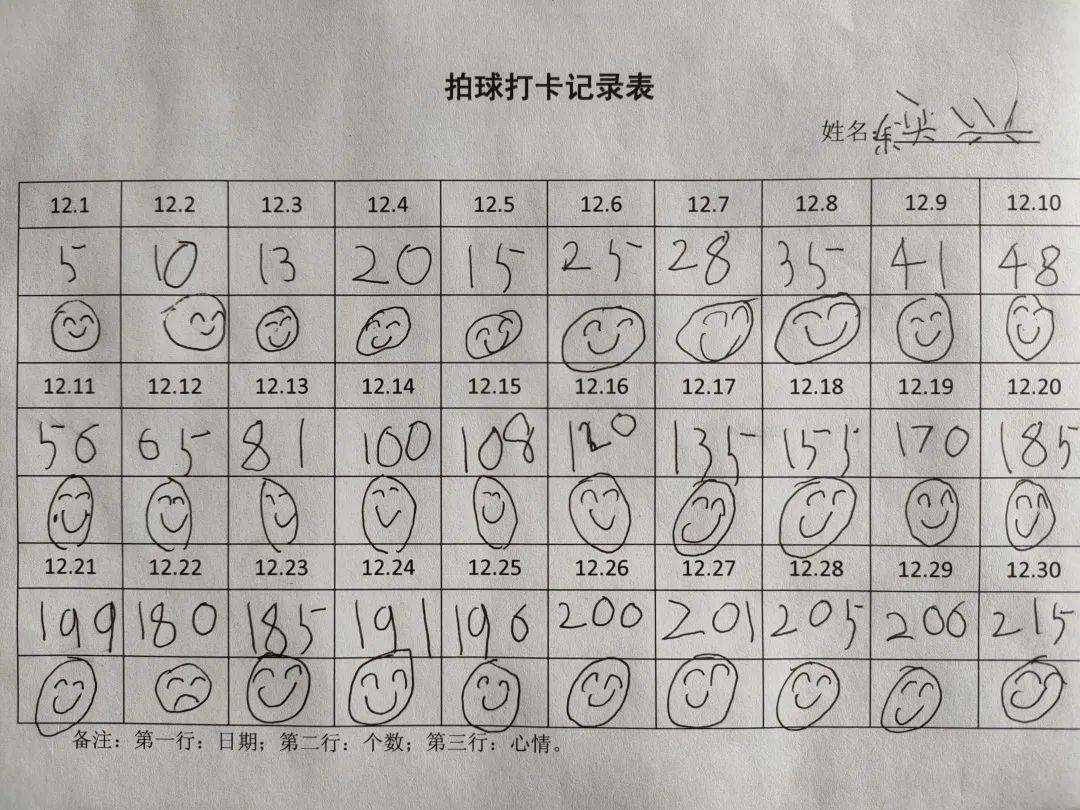 拍球打卡记录表
姓名:
12.1 12.2 12.3 12.4 12.5 12.6 12.7 12.8 12.9 12.10
5 10 13 20 15 25 28 35 41 48
12.11 12.12 12.13 12.14 12.15 12.16 12.17 12.18 12.19 12.20
56 65 81 100 108 120 135 155 170 185
12.21 12.22 12.23 12.24 12.25 12.26 12.27 12.28 12.29 12.30
199 180 185 191 196 200 201 205 206 215
备注：第一行：日期；第二行：个数；第三行：心情。